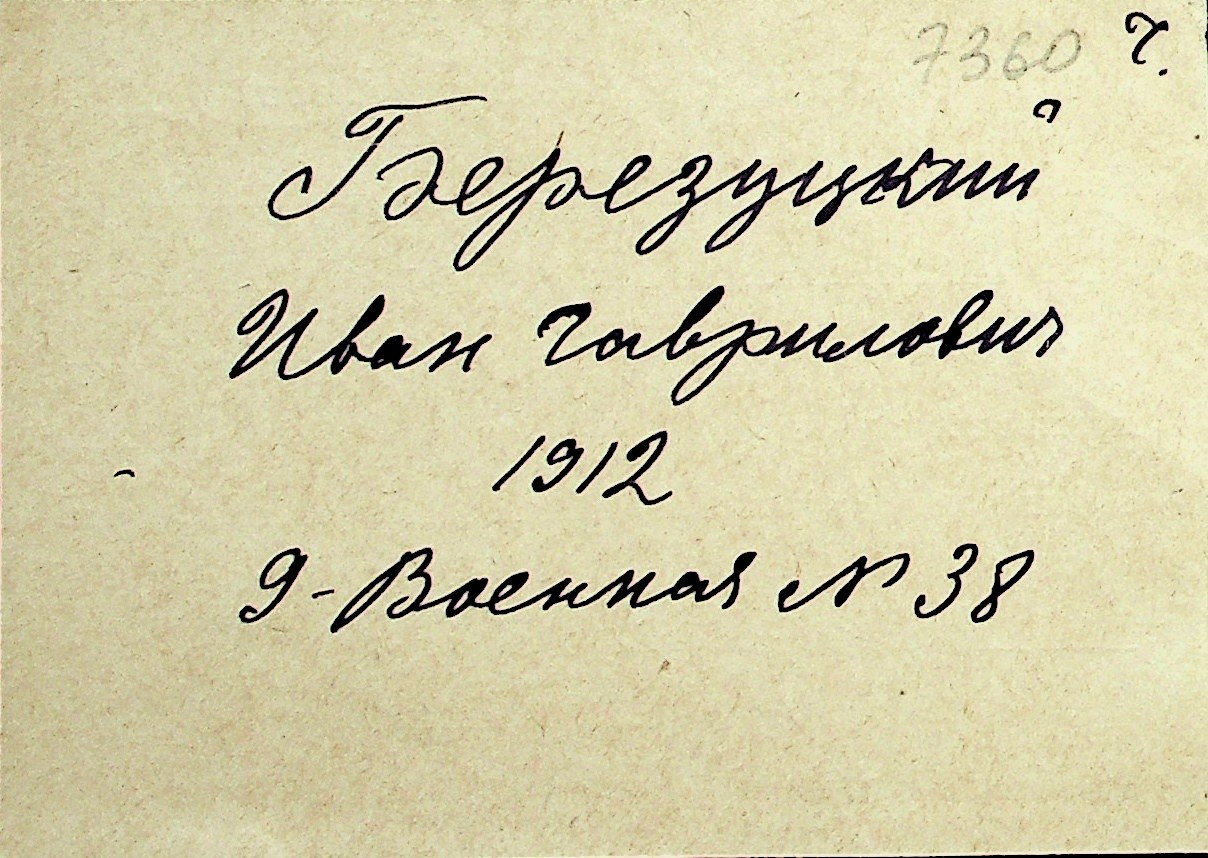 7360 г.
Березуцкий
Иван Гаврилович
1912
9-Военная № 38